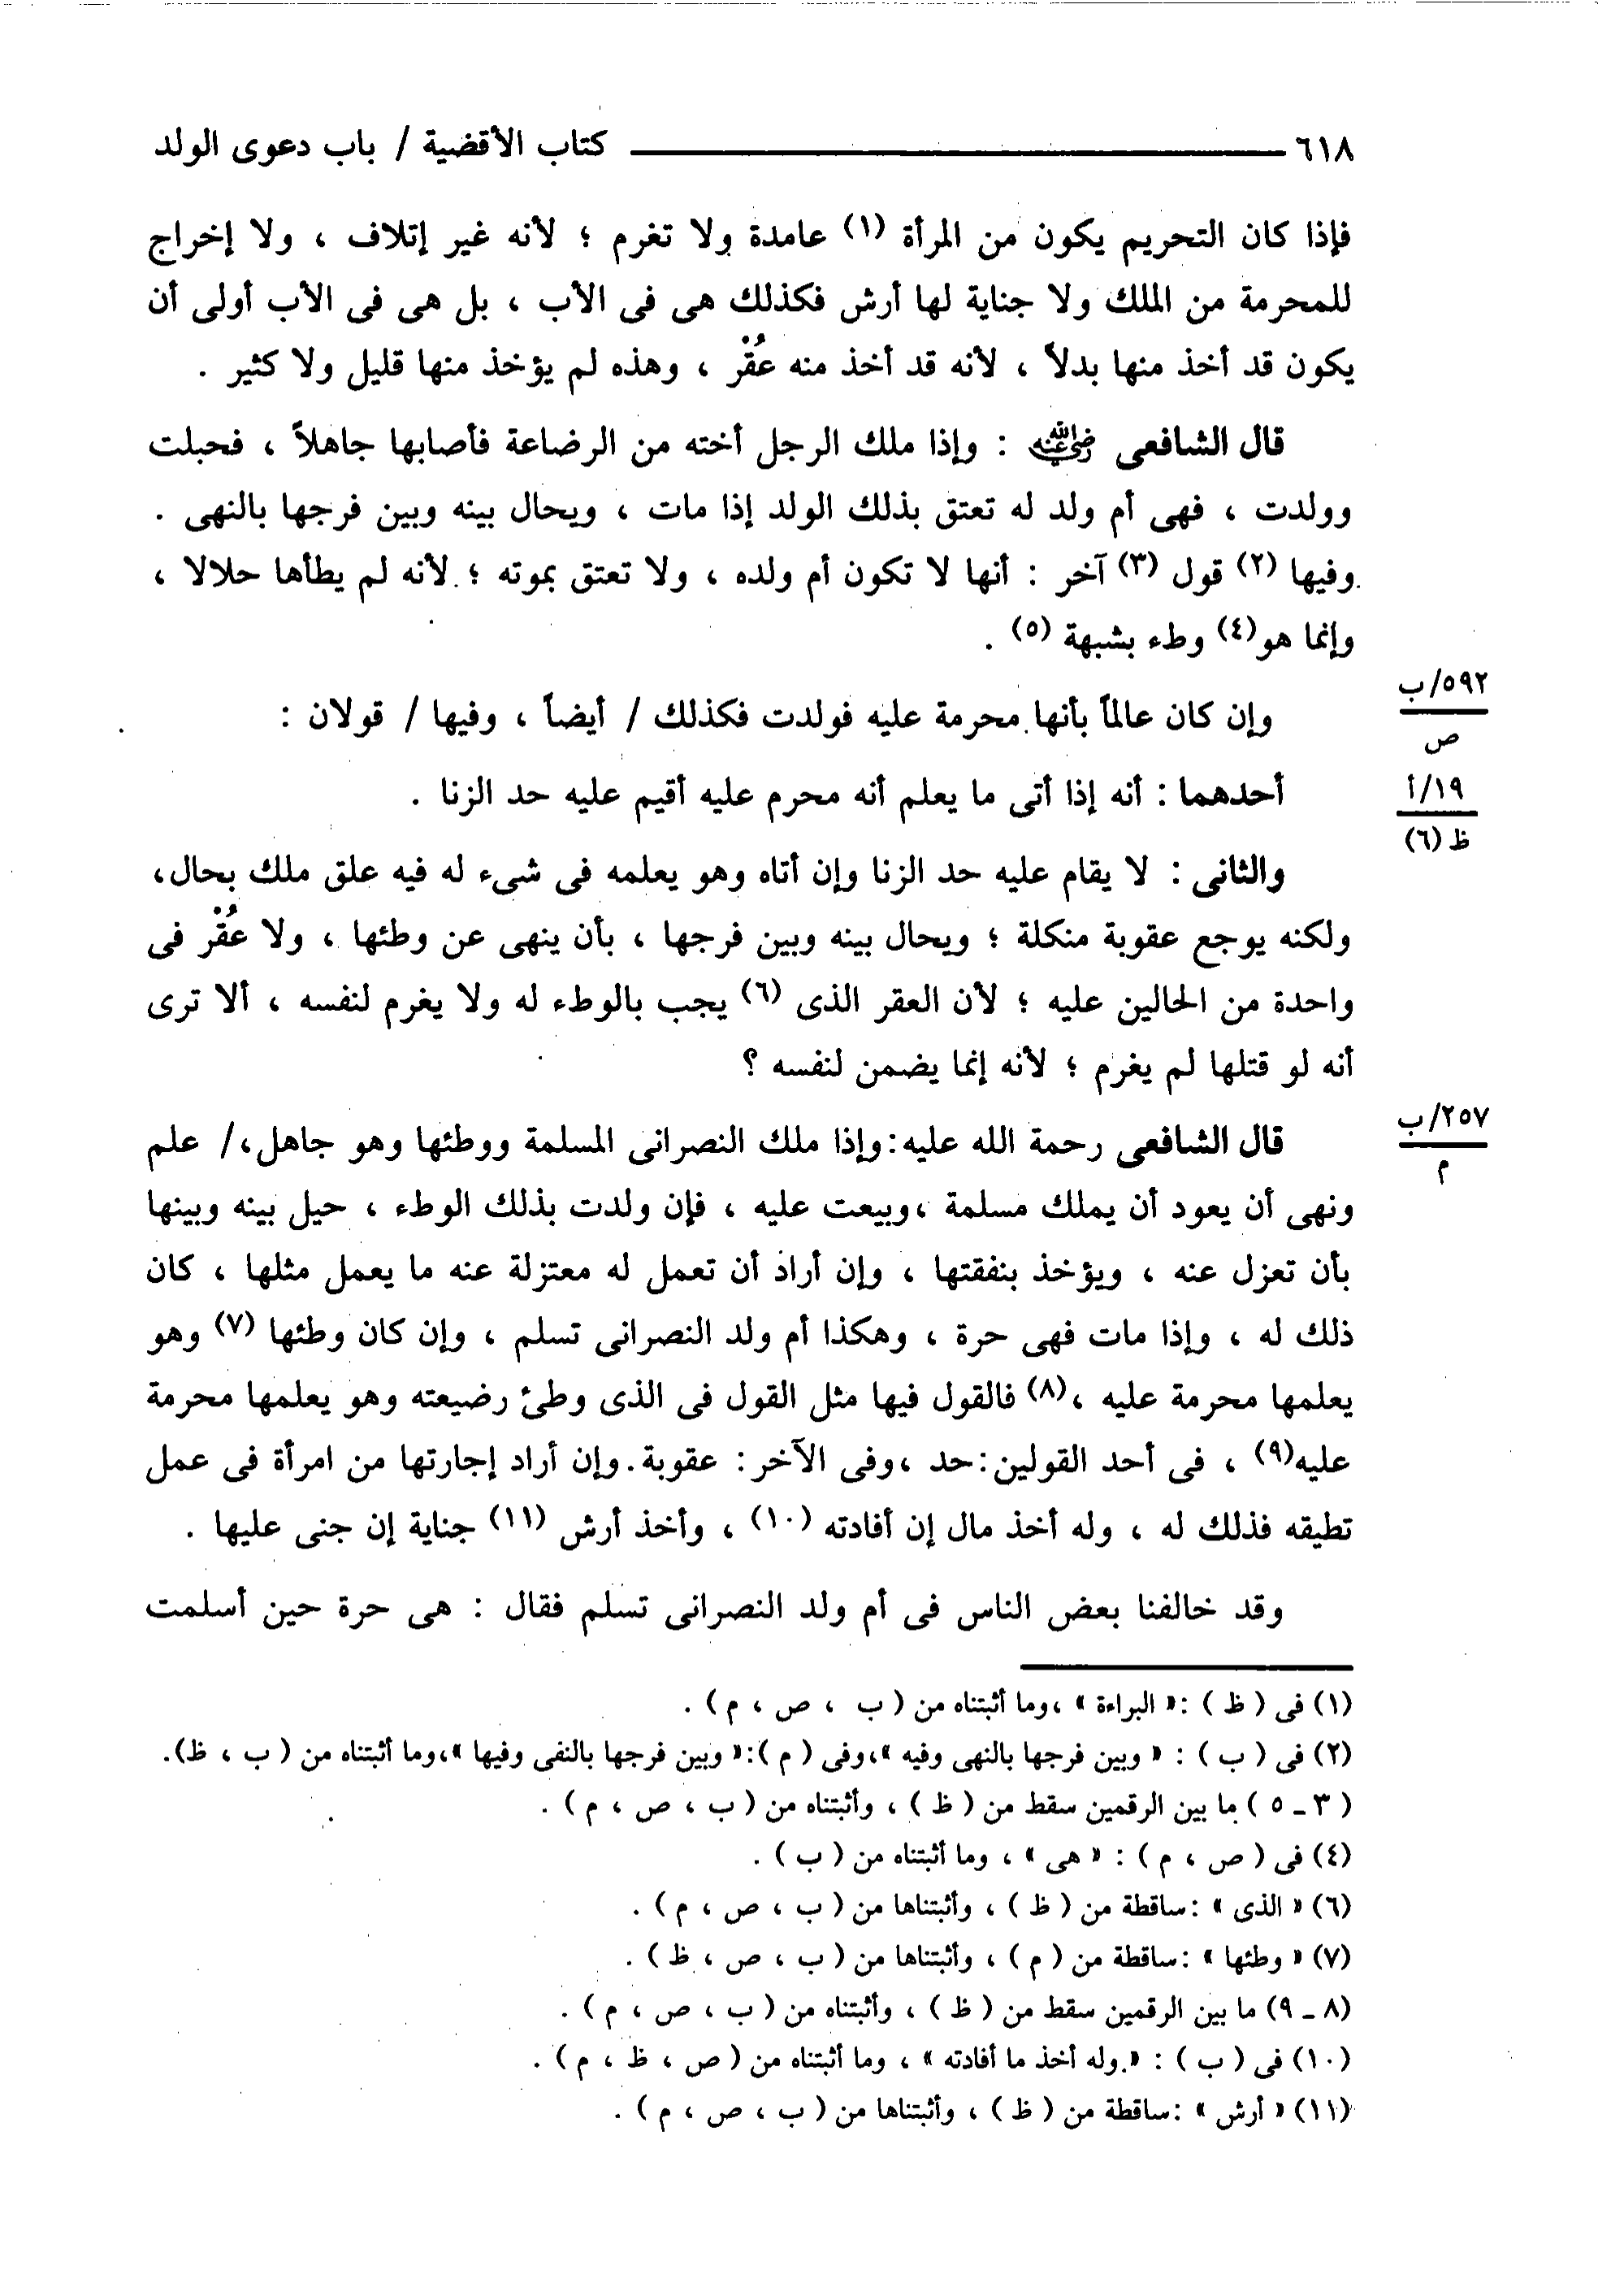 ٦١٨ كتاب الأقضية / باب دعوى الولد
فإذا كان التحريم يكون من المرأة (١) عامدة ولا تغرم ؛ لأنه غير إتلاف ، ولا إخراج
للمحرمة من الملك ولا جناية لها أرش فكذلك هى فى الأب ، بل هى فى الأب أولى أن
يكون قد أخذ منها بدلاً ، لأنه قد أخذ منه عُقْر ، وهذه لم يؤخذ منها قليل ولا كثير .
قال الشافعى رضي الله عنه : وإذا ملك الرجل أخته من الرضاعة فأصابها جاهلاً ، فحبلت
وولدت ، فهى أم ولد له تعتق بذلك الولد إذا مات ، ويحال بينه وبين فرجها بالنهى .
وفيها (٢) قول (٣) آخر : أنها لا تكون أم ولده ، ولا تعتق بموته ؛ لأنه لم يطأها حلالا ،
وإنما هو(٤) وطء بشبهة (٥) .
٥٩٢/ب
وإن كان عالماً بأنها محرمة عليه فولدت فكذلك / أيضاً ، وفيها / قولان :
ص
أحدهما : أنه إذا أتى ما يعلم أنه محرم عليه أقيم عليه حد الزنا .
١٩/أ
ظ (٦)
والثانى : لا يقام عليه حد الزنا وإن أتاه وهو يعلمه فى شىء له فيه علق ملك بحال،
ولكنه يوجع عقوبة منكلة ؛ ويحال بينه وبين فرجها ، بأن ينهى عن وطئها ، ولا عُقْر فى
واحدة من الحالين عليه ؛ لأن العقر الذى (٦) يجب بالوطء له ولا يغرم لنفسه ، ألا ترى
أنه لو قتلها لم يغرم ؛ لأنه إنما يضمن لنفسه ؟
٢٥٧/ب
قال الشافعى رحمة الله عليه:وإذا ملك النصرانى المسلمة ووطئها وهو جاهل،/ علم
م
ونهى أن يعود أن يملك مسلمة ،وبيعت عليه ، فإن ولدت بذلك الوطء ، حيل بينه وبينها
بأن تعزل عنه ، ويؤخذ بنفقتها ، وإن أراد أن تعمل له معتزلة عنه ما يعمل مثلها ، كان
ذلك له ، وإذا مات فهى حرة ، وهكذا أم ولد النصرانى تسلم ، وإن كان وطئها (٧) وهو
يعلمها محرمة عليه ،(٨) فالقول فيها مثل القول فى الذى وطئ رضيعته وهو يعلمها محرمة
عليه(٩) ، فى أحد القولين:حد ،وفى الآخر: عقوبة.وإن أراد إجارتها من امرأة فى عمل
تطيقه فذلك له ، وله أخذ مال إن أفادته (١٠) ، وأخذ أرش (١١) جناية إن جنى عليها .
وقد خالفنا بعض الناس فى أم ولد النصرانى تسلم فقال : هى حرة حين أسلمت
(١) فى ( ظ ) :« البراءة » ،وما أثبتناه من ( ب ، ص ، م ) .
(٢) فى ( ب ) : « وبين فرجها بالنهى وفيه »،وفى ( م ):« وبين فرجها بالنفى وفيها »،وما أثبتناه من ( ب ، ظ).
( ٣ ـ ٥ ) ما بين الرقمين سقط من ( ظ ) ، وأثبتناه من ( ب ، ص ، م ) .
(٤) فى ( ص ، م ) : « هى » ، وما أثبتناه من ( ب ) .
(٦) « الذى » :ساقطة من ( ظ ) ، وأثبتناها من ( ب ، ص ، م ) .
(٧) « وطئها » :ساقطة من ( م ) ، وأثبتناها من ( ب ، ص ، ظ ) .
(٨ ـ ٩) ما بين الرقمين سقط من ( ظ ) ، وأثبتناه من ( ب ، ص ، م ) .
(١٠) فى ( ب ) : « وله أخذ ما أفادته » ، وما أثبتناه من ( ص ، ظ ، م ) .
(١١) « أرش » :ساقطة من ( ظ ) ، وأثبتناها من ( ب ، ص ، م ) .